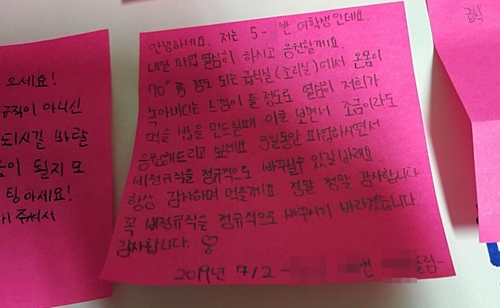 오세요!
규직이 아니신
되시길 바랄
팅하세요!
안녕하세요. 저는 5- 반 여학생인데요
내일 파업 열심히 하시고 응원할께요.
70°흡 정도 되는 급식실(조리실)에서 온몸이
녹아버리는 느낌이 들 정도로 열심히 저희가
먹을 밥을 만드실때 이걸 보면서 조금이라도
응원해드리고 싶네요. 3일동안 파업하시면서
비정규직을 정규직으로 바꾸실수 있길 바래요
항상 감사하며 먹을께요 정말 정말 감사합니다
꼭 비정규직을 정규직으로 바꾸시기 바라겠습니다
감사합니다. ♡
2019년 7/2 -